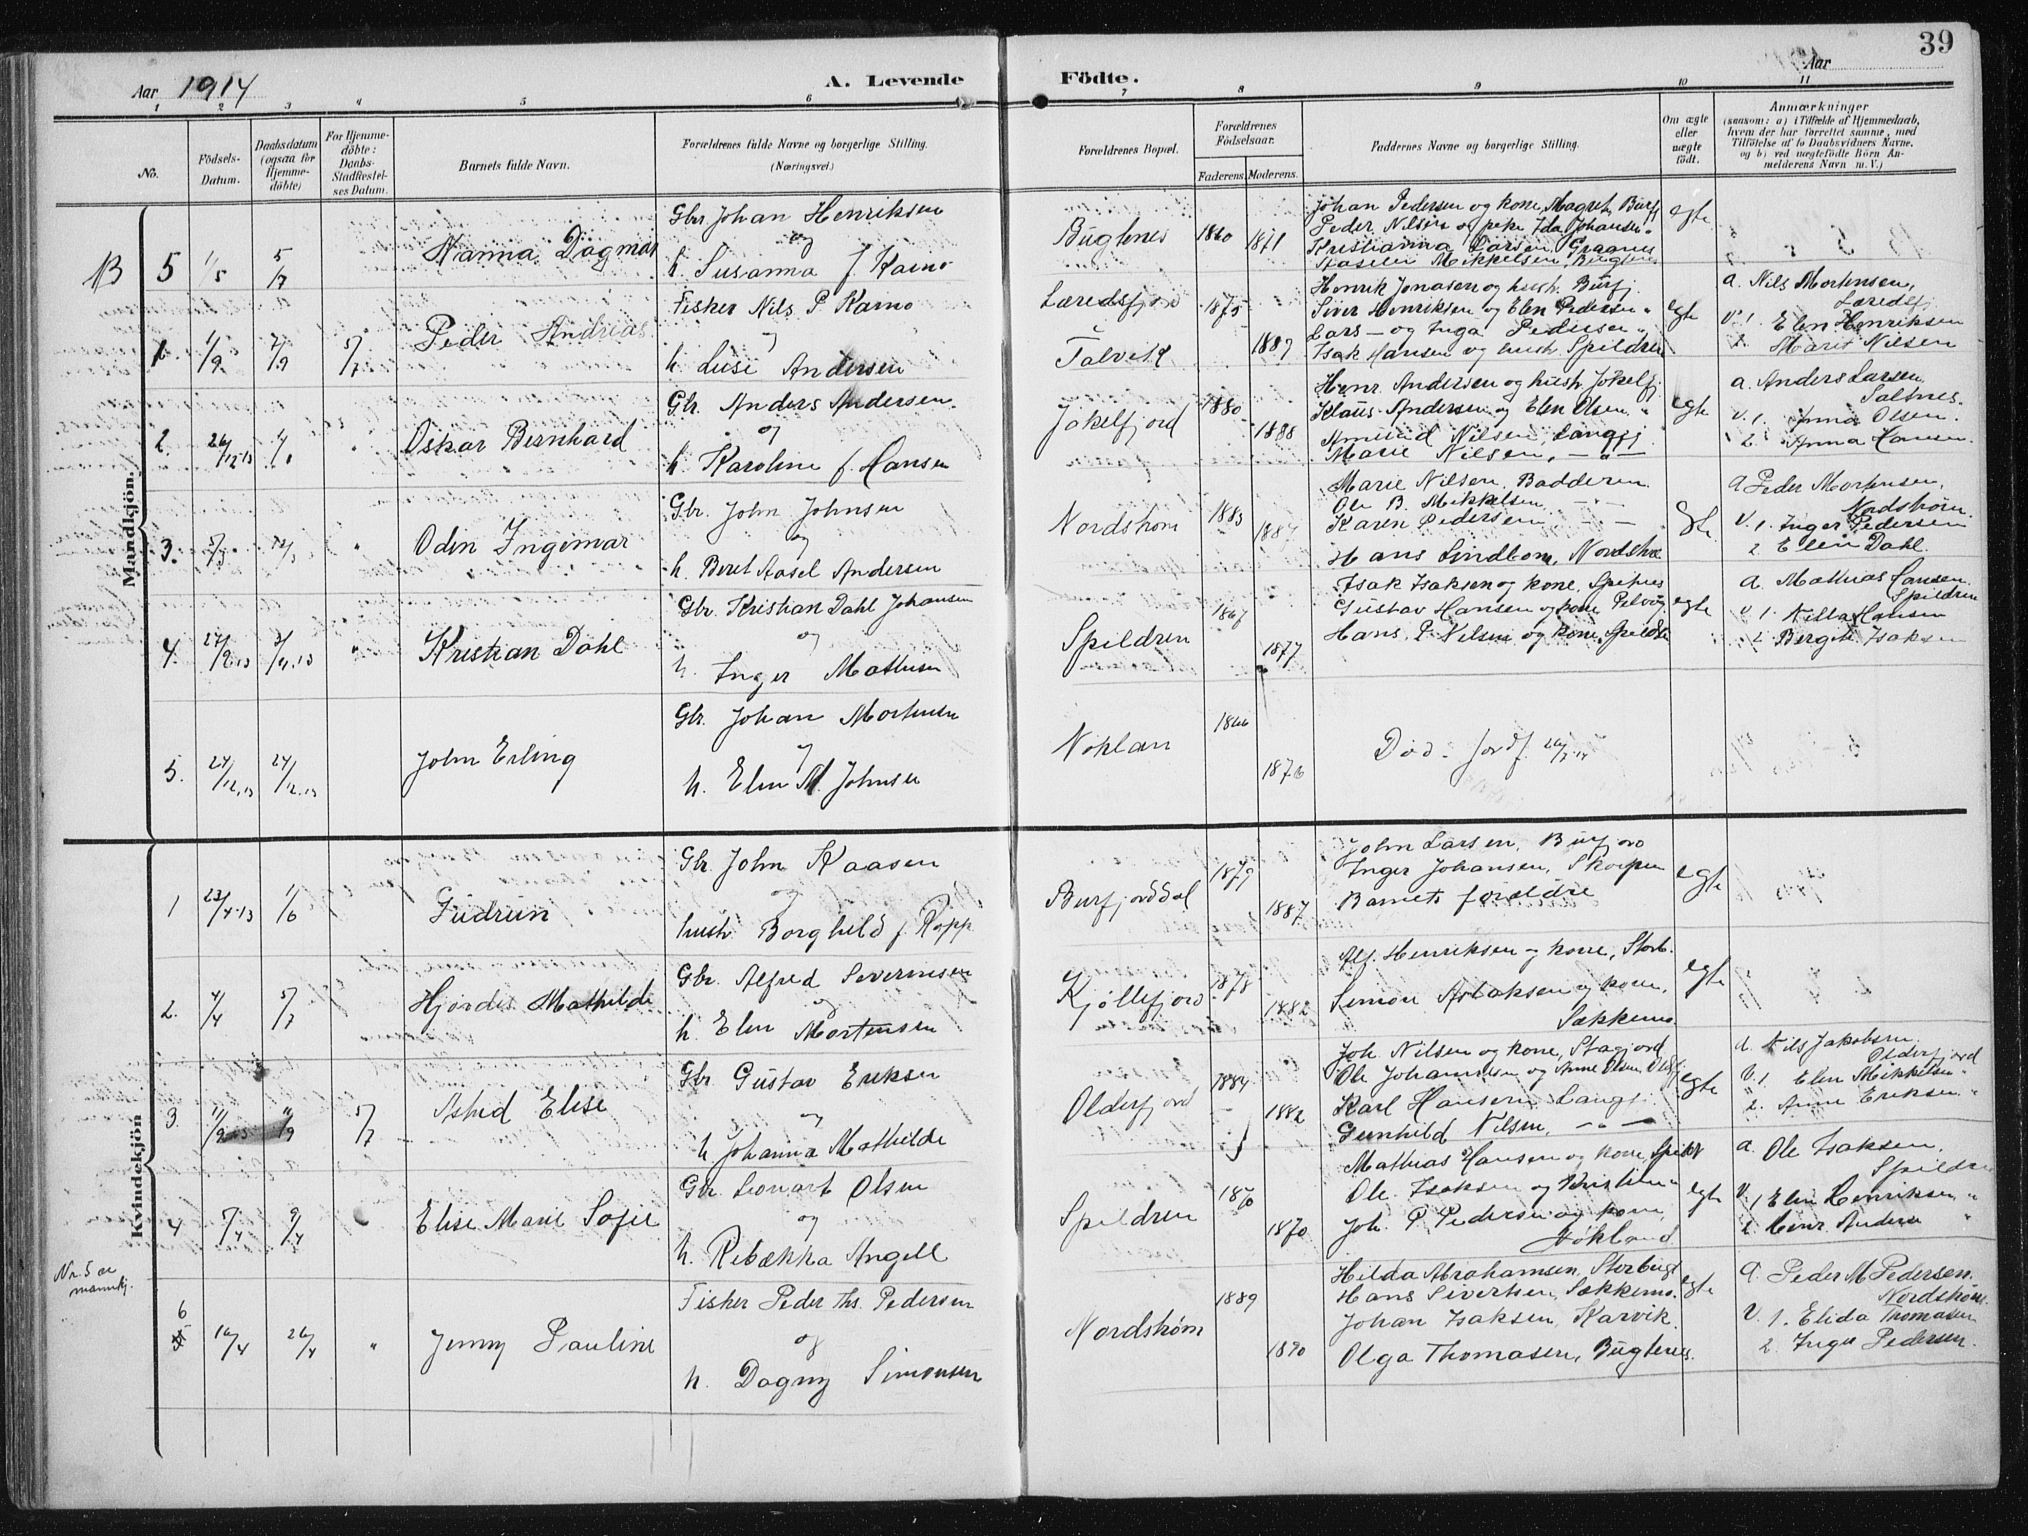 39
Aar 1914
A. Levende
Födte.
Aar
1 2 3 4 5 6 7 8 9 10 11
No.
Födsels-Datum.
Daabsdatum (ogsaa for Hjemme-döbte)
For Hjemme-döbte: Daabs-Stadfæstel-ses Datum.
Barnets fulde Navn.
Forældrenes fulde Navne og borgerlige Stilling. (Næringsvei.)
Forældrenes Bopæl.
Forældrenes Födselsaar.
Faderens. Moderens.
Faddernes Navne og borgerlige Stilling.
Om ægte eller uægte födt.
Anmærkninger
(saasom: a) i Tilfælde af Hjemmedaab, hvem der har forrettet samme, med Tilföielse af to Daabsvidners Navne, og b) ved uægtefödte Börn An-melderens Navn m. V.)
Mandkjön.
B 5 1/5 5/7
Nanna Dagmar
Gbr Johan Henriksen
og
h. Susanna f. Karno
Bugtnes 1860 1871
Johan Pedersen og kone, Magret, Burfj
Peder Nilsen og pike Ida Johansen "
Kristianna Larsen, Gragnes
Mikkelsen, Bugtnes
egte
1. 1/9 2/9 5/7
Peder Andreas
Fisker Nils P Karno
og
h. Lusi Andersen
Læredsfjord
Talvik 1875 1889
Henrik Jonasen og hustr. Burfj.
Siver Henriksen og Elen Pedersen "
Lars — og Inga Pedersen "
Isak Hansen og hustr. Spildren
egte
a. Nils Mortensen,
Læredsfj
V. 1. Elen Henriksen
2. Marit Nilsen
2. 26/12-13
Oskar Bernhard
Gbr. Anders Andersen.
og
h. Karoline f. Hansen
Jøkelfjord 1880 1888
Henr. Andersen og hustr. Jøkelfj.
Klaus Andersen og Elen Olsen "
Amund Nilsen, Langfj
Marie Nilsen, — " —
egte
a. Anders Larsen,
Saltnes.
V. 1. Anna Olsen
2. Anna Hansen.
3. 5/3
Oden Ingemar
Gbr. John Johnsen
og
h. Beret Aasel Andersen
Nordstrøm 1883 1887
Marie Nilsen, Badderen
Ole B. Mikkelsen, — " —
Karen Pedersen — " —
Hans Lindbom, Nordstrøm
egte
a Peder Mortensen,
Nordstrøm.
V. 1. Inger Pedersen
2 Elen Dahl.
4. 27/2-13
Kristian Dahl
Gbr. Kristian Dahl Johansen
og
h. Inger Mathisen
Spildren 1867 1877
Isak Isaksen og kone,
Gustav Hansen og kone
Hans P. Nilsen og kone, Spildren
egte
a. Mathias Hansen
Spildren
V 1. Hansen
2 Bergit Isaksen
5. 24/12.13 24/12.13
John Erling
Gbr. Johan Mortensen
og
h. Elen M. Johnsen
Noklan 1866 1876
Død. Jordf.
Kvindekjön
1 23/4-13 1/6
Gudrun
Gbr John Kaasen
og
hustr Borghild f. Rapp
Burfjorddal 1879 1887
John Larsen, Burfjord
Inger Johansen, Skorpen
Barnets forældre
egte
2. 4/4 5/7
Hjørdis Mathilde
Gbr. Alfred Severinsen
og
h. Elen Mortensen
Kjøllefjord 1878 1882
Alf. Henriksen og kone, Storb.
Simon Aslaksen og kone,
Sækkemo.
egte
3. 5/7
Astrid Elise
Gbr Gustav Eriksen
og
h Johanna Mathilde
Olderfjord 1884 1882
Joh. Nilsen og kone, Stagjord
Ole Johannesen og Anne Olsen Olderfj
Karl Hansen Langfj.
Gunhild Nilsen. — " —
egte
a. Nils Jakobsen
Olderfjord
V. 1 Elen Mikkelsen "
2. Anne Eriksen "
4 7/4 9/4 "
Elise Marie Sofie
Gbr Leonart Olsen
og
h. Rebækka Angell
Spildren 1870 1870
Mathias Hansen og kone, Spildr
Ole Isaksen og Kristine "
Joh. P. Pedersen og kone,
Løkland
egte
a. Ole Isaksen,
Spildren
V. 1 Elen Henriksen "
2 Henr. Andersen "
Nr. 5 se mannkj.
6 5 16/4 26/4 "
Jenny Pauline
Fisker Peder Ths. Pedersen
og
h. Dagny Simonsen
Nordstrøm 1889 1890
Hilda Abrahamsen, Storbugt
Hans Sivertsen, Sækkemo.
Johan Isaksen, Karvik.
Olga Thomasen, Bugtnes.
egte
a. Peder M Pedersen.
Nordstrøm.
V. 1. Elida Thomasen
2. Inga Pedersen.